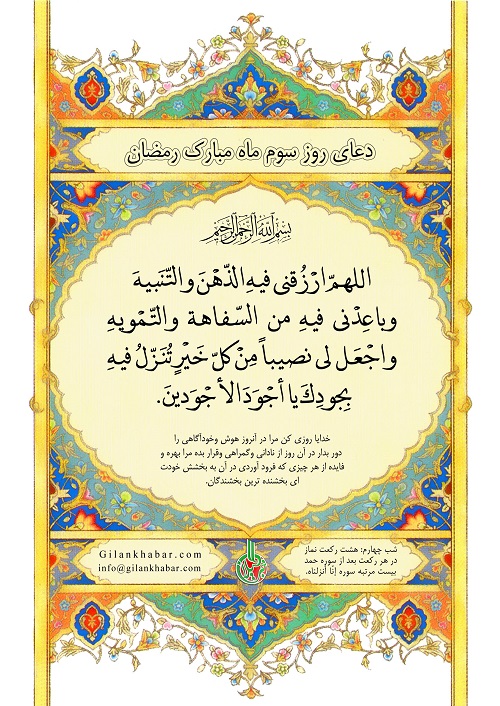 دعای روز سوم ماه مبارک رمضان
بسم الله الرحمن الرحیم
اللهمّ ارْزُقنی فیهِ الذّهْنَ والتّنَبیهَ
وباعِدْنی فیهِ من السّفاهةِ والتّمْویهِ
واجْعَل لی نصیباً مِنْ کلّ خَیْرٍ تُنَزّلُ فیهِ
بِجودِكَ یا أجْوَدَ الأجْوَدینَ.
خدایا روزی کن مرا در آنروز هوش وخودآگاهی را
دور بدار در آن روز از نادانی وگمراهی وقرار بده مرا بهره و
فایده از هر چیزی که فرود آوردی در آن به بخشش خودت
ای بخشنده ترین بخشندگان.
شب چهارم: هشت رکعت نماز
در هر رکعت بعد از سوره حمد
بیست مرتبه سوره إنّا أنزلناه.
Gilankhabar.com
info@gilankhabar.com